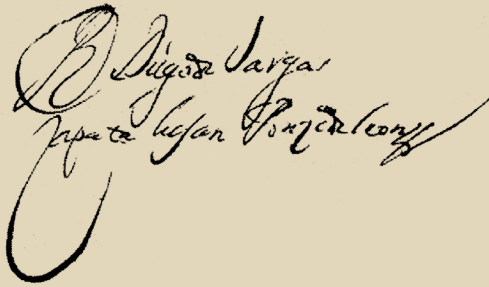 D Diego de Vargas
Zapata Lujan Ponze de Leon